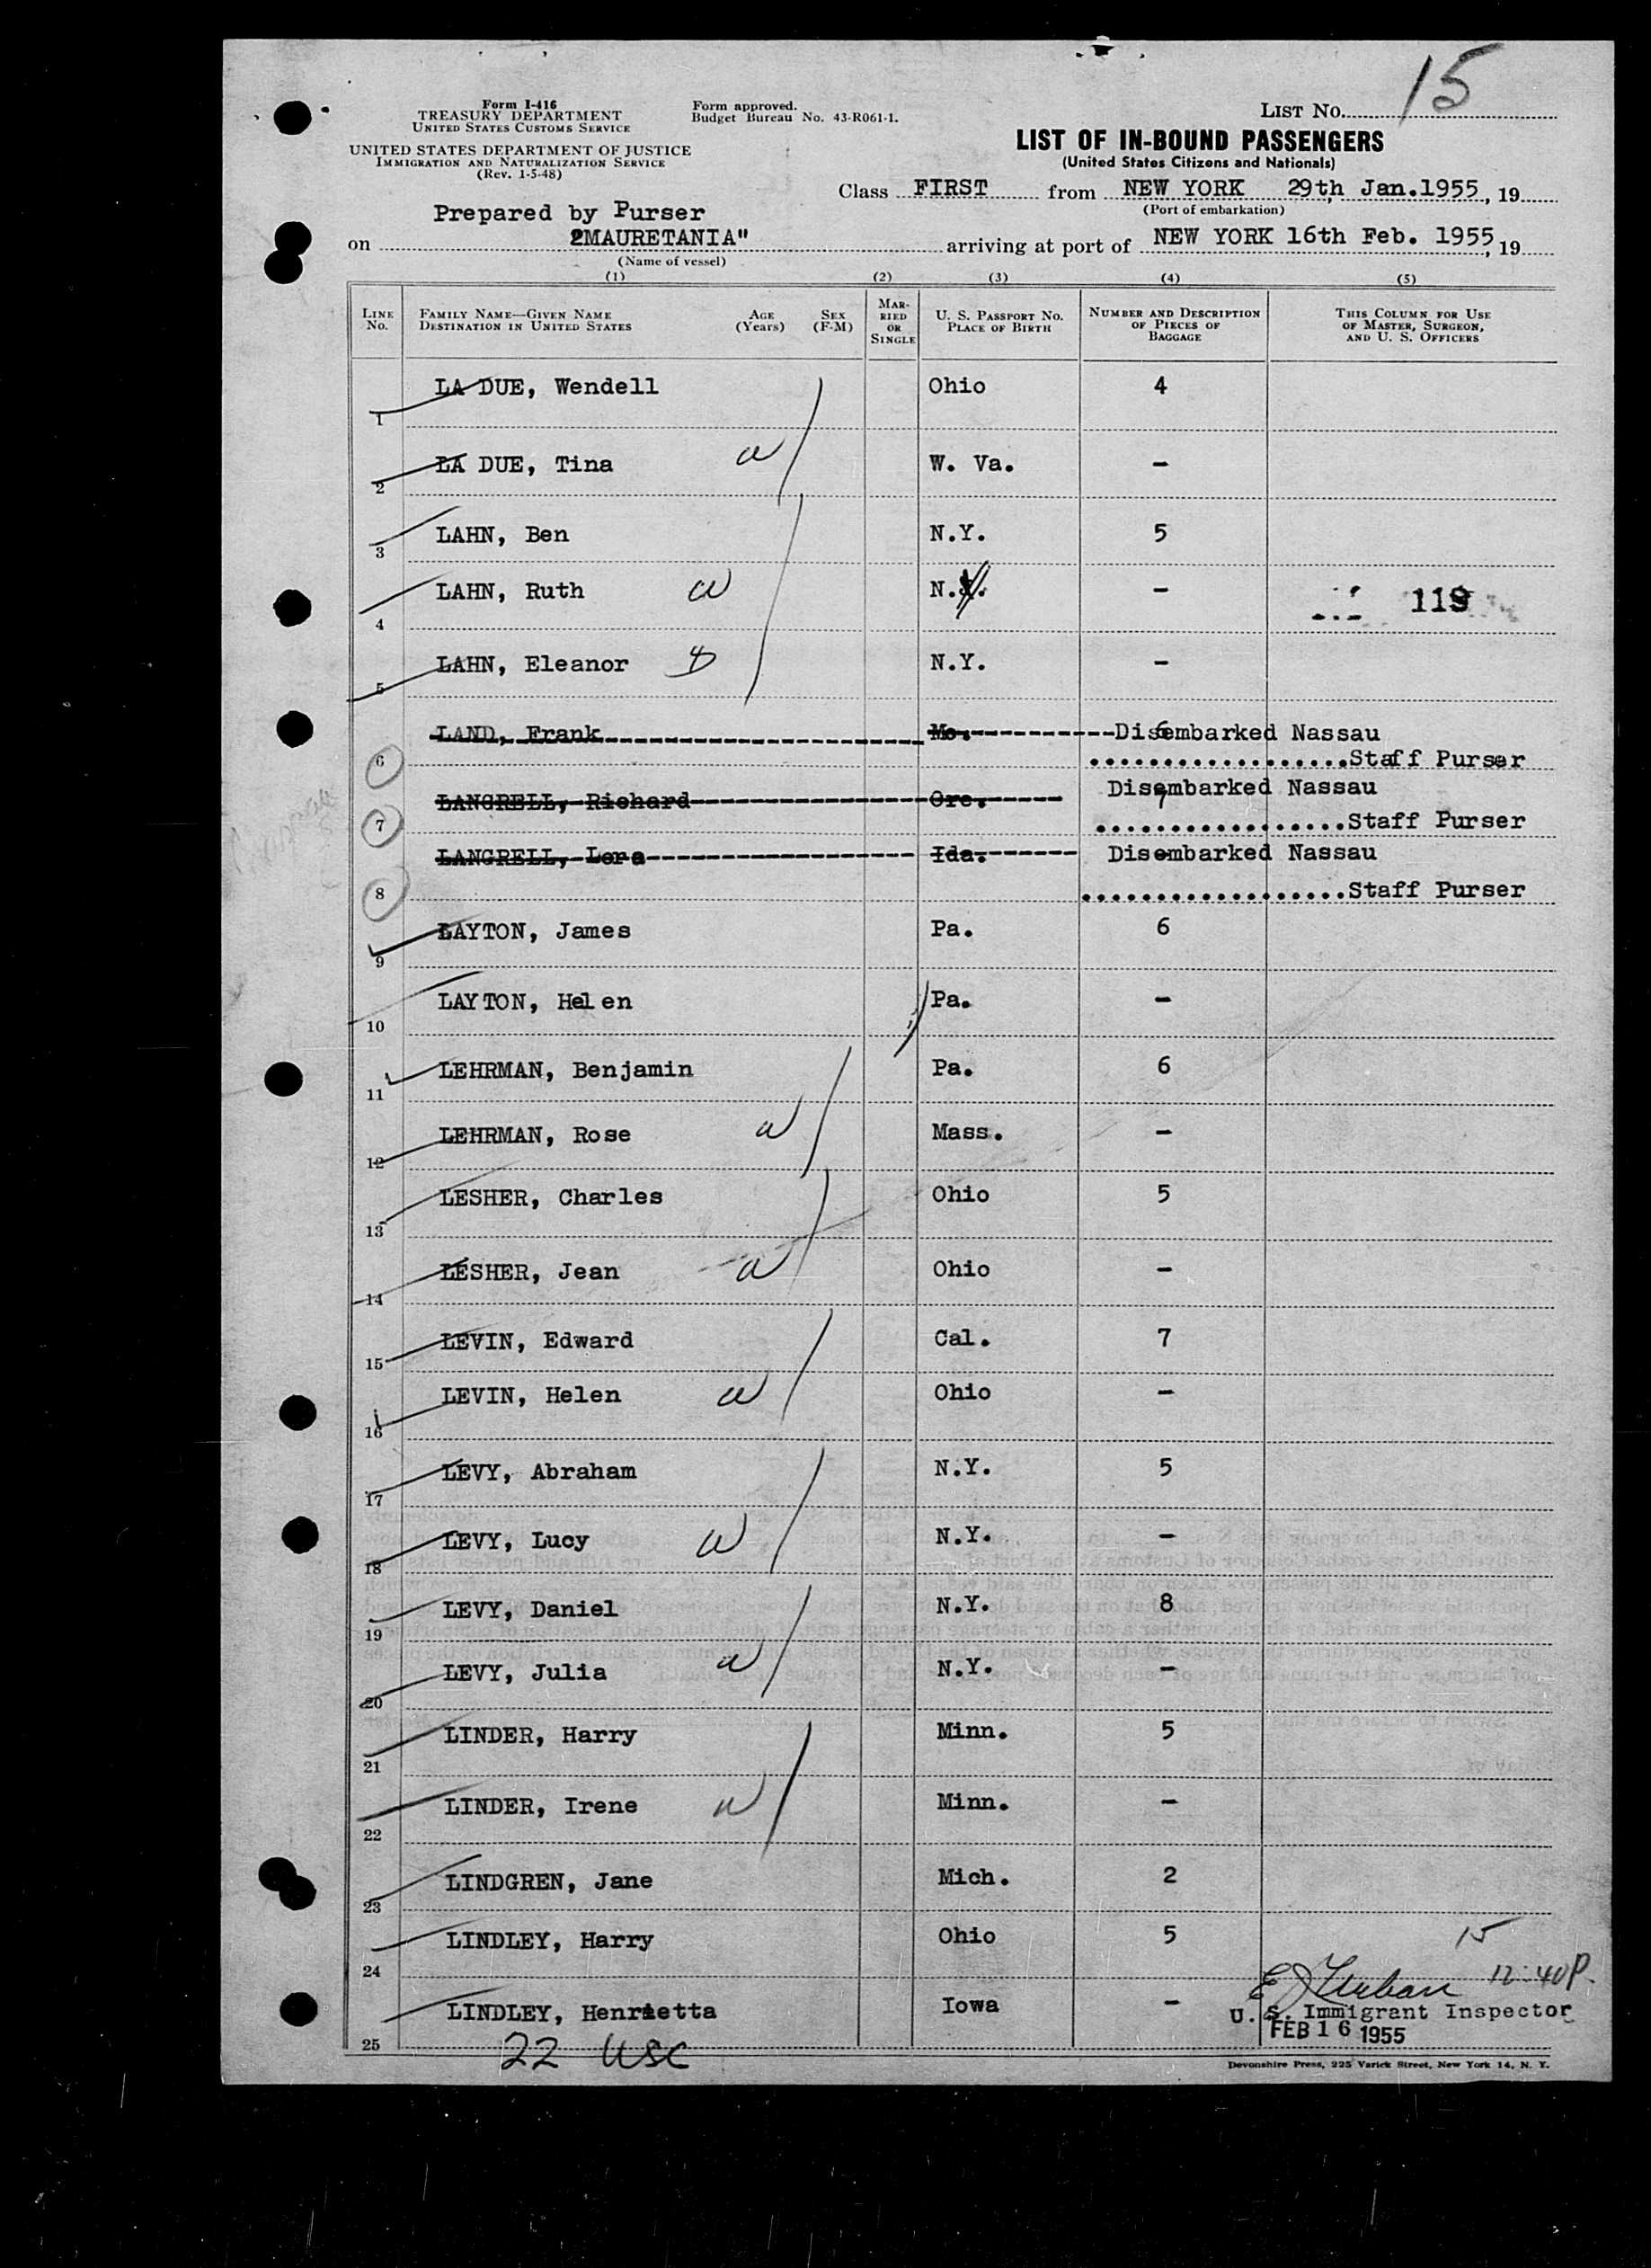 15
Form I-416
TREASURY DEPARTMENT
UNITED STATES CUSTOMS SERVICE
UNITED STATES DEPARTMENT OF JUSTICE
IMMIGRATION AND NATURALIZATION SERVICE
(Rev. 1-5-48)
Form approved.
Budget Bureau No. 43-R061-1.
LIST No.
LIST OF IN-BOUND PASSENGERS
(United States Citizens and Nationals)
Class FIRST from NEW YORK 29th, Jan.1955, 19
(Port of embarkation)
Prepared by Purser
on "MAURETANIA" arriving at port of NEW YORK 16th Feb. 1955, 19
(Name of vessel)
(1) (2) (3) (4) (5)
LINE No. FAMILY NAME—GIVEN NAME DESTINATION IN UNITED STATES AGE (Years) SEX (F-M) MARRIED OR SINGLE U. S. PASSPORT No. PLACE OF BIRTH NUMBER AND DESCRIPTION OF PIECES OF BAGGAGE THIS COLUMN FOR USE OF MASTER, SURGEON, AND U. S. OFFICERS
1 LA DUE, Wendell Ohio 4
2 LA DUE, Tina W W. Va. -
3 LAHN, Ben N.Y. 5
4 LAHN, Ruth W N. - 119
5 LAHN, Eleanor D N.Y. -
6 LAND, Frank Mo. 6 Disembarked Nassau
Staff Purser
7 LANGRELL, Richard Ore. 7 Disembarked Nassau
Staff Purser
8 LANGRELL, Lora Ida. - Disembarked Nassau
Staff Purser
9 LAYTON, James Pa. 6
10 LAYTON, Helen Pa. -
11 LEHRMAN, Benjamin Pa. 6
12 LEHRMAN, Rose W Mass. -
13 LESHER, Charles Ohio 5
14 LESHER, Jean W Ohio -
15 LEVIN, Edward Cal. 7
16 LEVIN, Helen W Ohio -
17 LEVY, Abraham N.Y. 5
18 LEVY, Lucy W N.Y. -
19 LEVY, Daniel N.Y. 8
20 LEVY, Julia W N.Y. -
21 LINDER, Harry Minn. 5
22 LINDER, Irene W Minn. -
23 LINDGREN, Jane Mich. 2
24 LINDLEY, Harry Ohio 5 15
12:40P.
25 LINDLEY, Henrietta Iowa -
U. S. Immigrant Inspector
FEB 16 1955
22 USC
Devonshire Press, 225 Varick Street, New York 14, N. Y.